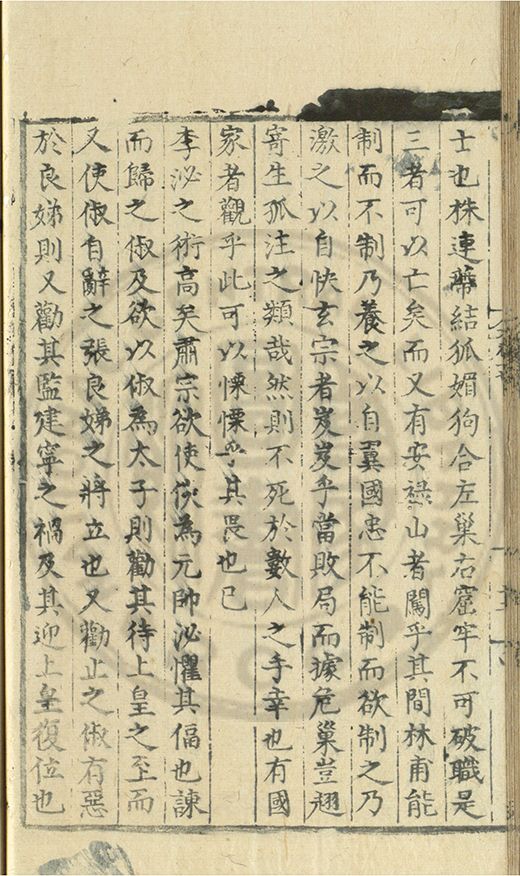 士也株連蔕結狐媚狗合左巢右窟牢不可破職是
三者可以亡矣而又有安祿山者闖乎其間林甫能
制而不制乃養之以自翼國忠不能制而欲制之乃
激之以自快玄宗者岌岌乎當敗局而據危巢豈翅
寄生孤注之類哉然則不死於數人之手幸也有國
家者觀乎此可以慄慄乎其畏也已
李泌之術高矣肅宗欲使倓為元帥泌懼其偪也諫
而歸之俶及欲以俶為太子則勸其待上皇之至而
又使俶自辭之張良娣之將立也又勸止之俶有惡
於良娣則又勸其監建寧之禍及其迎上皇復位也